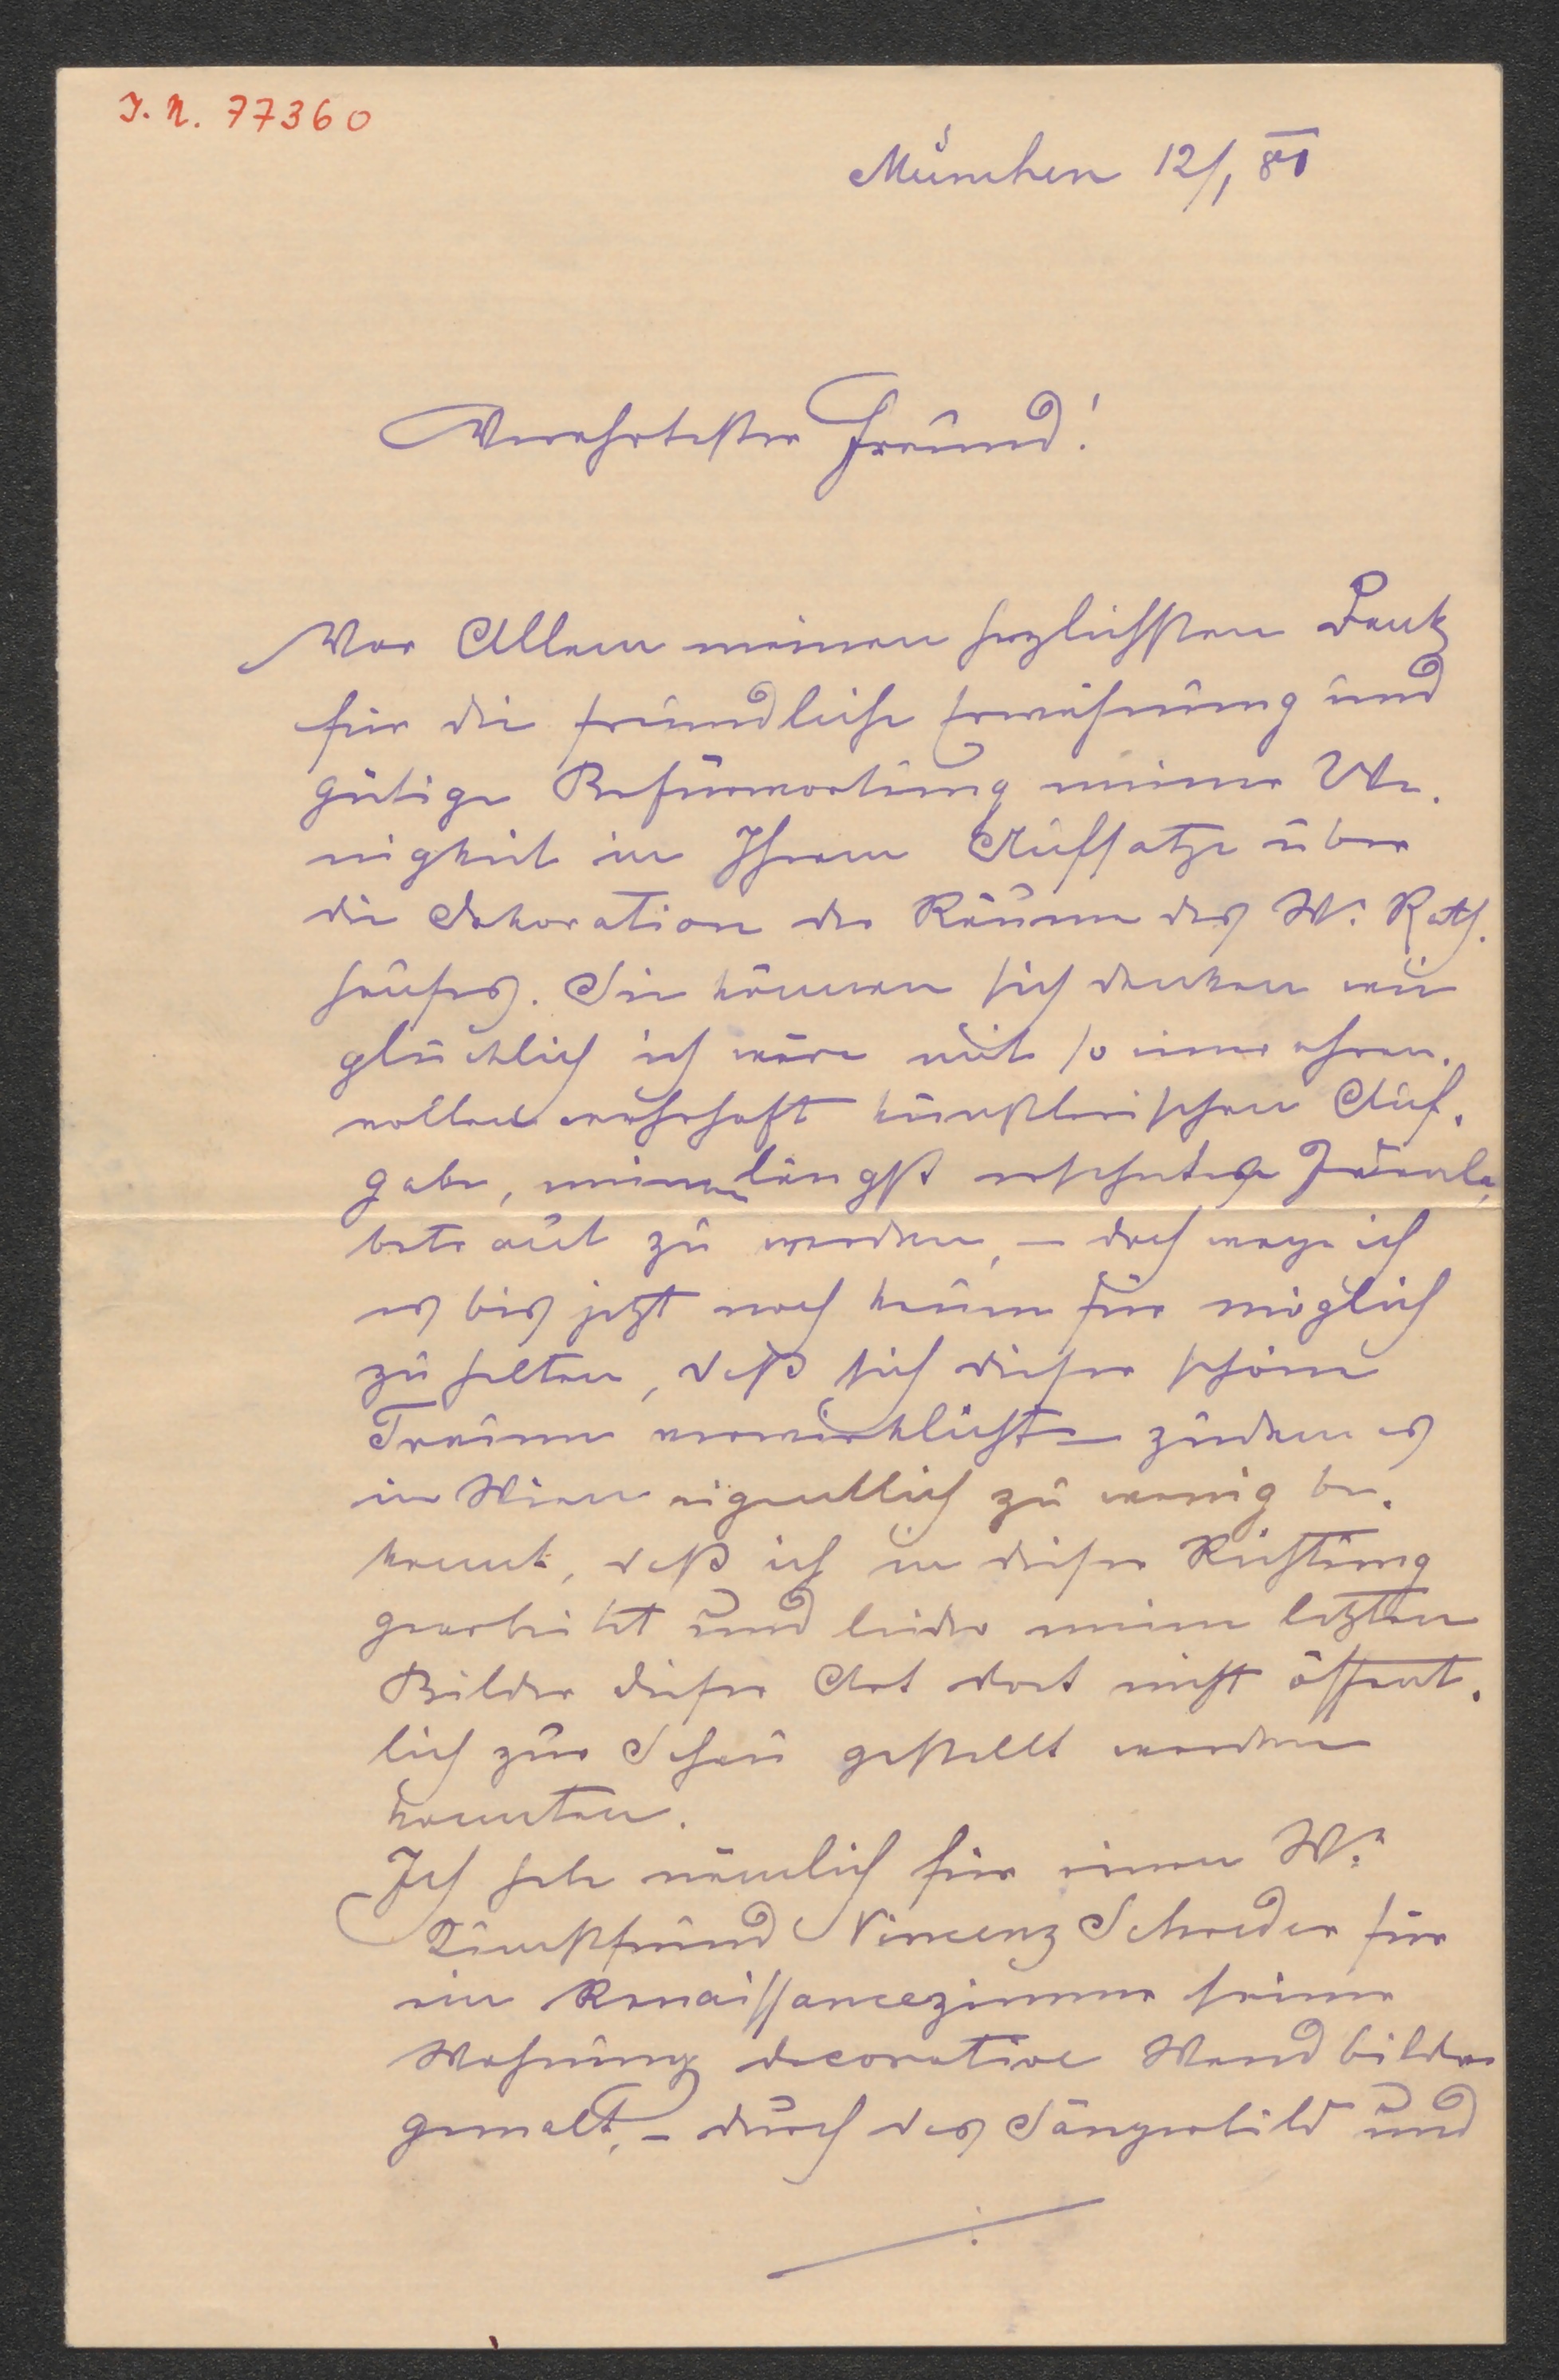 J. N. 77360
München 12/1 81
Verehrtester Freund!
Vor Allem meinen herzlichsten Dank
für die freundliche Erwähnung und
gütige Befürwortung meiner We-
nigkeit in Ihrem Aufsatze über
die Dekoration der Räume des Wr. Rath-
hauses. Sie können sich denken wie
glücklich ich wäre mit so einer ehren-
vollen wahrhaft künstlerischen Auf-
gabe, meinem längst ersehnten Ideale,
betraut zu werden, – doch wage ich
es bis jetzt noch kaum für möglich
zu halten, daß sich dieser schöne
Traum verwirklicht – zudem es
in Wien eigentlich zu wenig be-
kannt, daß ich in dieser Richtung
gearbeitet und leider meine letzten
Bilder dieser Art dort nicht öffent-
lich zur Schau gestellt werden
konnten.
Ich habe nämlich für einen Wr.
Kunstfreund Vincenz Schreder für
ein Renaissancezimmer seiner
Wohnung decorative Wandbilder
gemalt, – durch das Sängerbild und